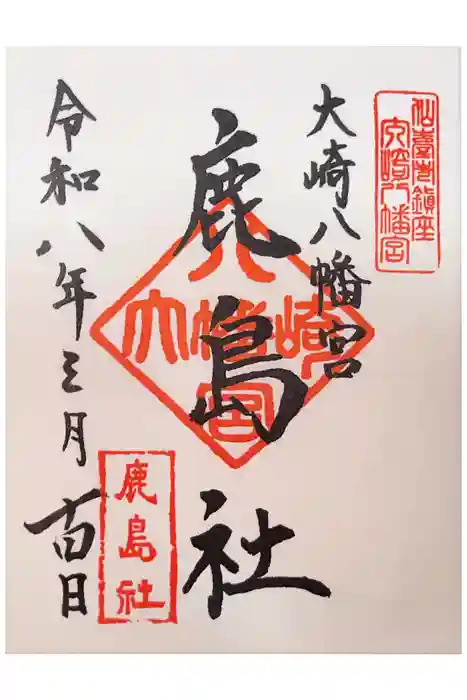 大崎八幡宮
大崎八幡宮
鹿島社
大崎八幡宮
令和八年三月百日
鹿島社